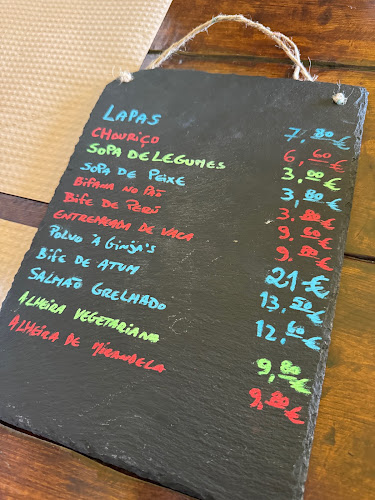 LAPAS 7,80€
CHOURIÇO 6,60€
SOPA DE LEGUMES 3,00€
SOPA DE PEIXE 3,80€
BIFANA NO PÃO 3,80€
BIFE DE PERU 9,60€
ENTREMEADA DE VACA 9,80€
POLVO À GINJA'S 21€
BIFE DE ATUM 13,50€
SALMÃO GRELHADO 12,60€
ALHEIRA VEGETARIANA 9,80€
ALHEIRA DE MIRANDELA 9,80€